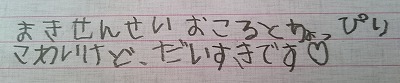 まきせんせい おこるとちょっぴり
こわいけど、だいすきです♡